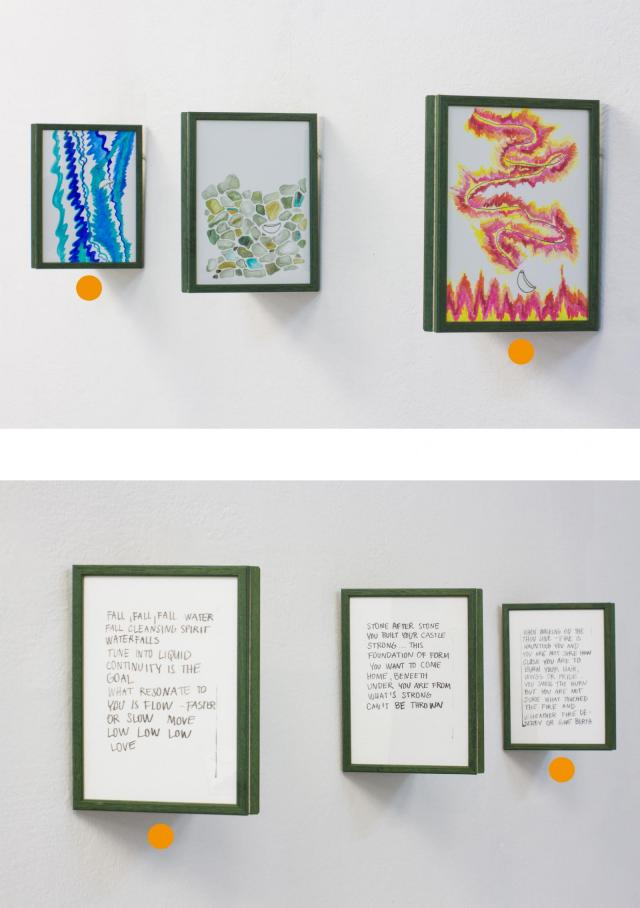 FALL, FALL, FALL WATER
FALL CLEANSING SPIRIT
WATERFALLS
TUNE INTO LIQUID
CONTINUITY IS THE
GOAL
WHAT RESONATE TO
YOU IS FLOW - FASTER
OR SLOW MOVE
LOW LOW LOW
LOVE
STONE AFTER STONE
YOU BUILT YOUR CASTLE
STRONG ... THIS
FOUNDATION OF FORM
YOU WANT TO COME
HOME, BENEETH
UNDER YOU ARE FROM
WHAT'S STRONG
CAN'T BE THROWN
WHEN WALKING ON THE
THIN LINE - FIRE IS
HAUNTING YOU AND
YOU ARE NOT SURE HOW
CLOSE YOU ARE TO
BURN YOUR HAIR,
WINGS OR PRIDE
YOU SMELL THE BURN
BUT YOU ARE NOT
SURE WHAT TOUCHED
THE FIRE AND
WHEATHER FIRE DE-
OR GIVE BIRTH